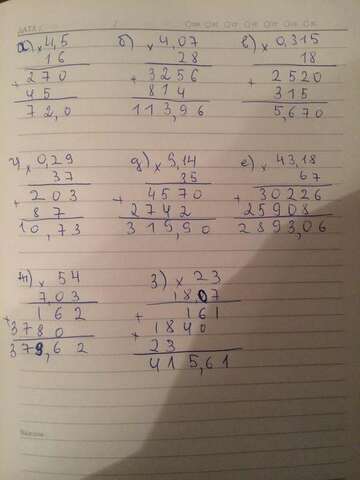 DATA:
а) × 4,5
16
+ 270
45
72,0
б) × 4,07
28
+ 3256
814
113,96
в) × 0,315
18
+ 2520
315
5,670
г) × 0,29
37
+ 203
87
10,73
д) × 9,14
35
+ 4570
2742
319,90
е) × 43,18
67
+ 30226
25908
2893,06
ж) × 54
7,03
+ 162
3780
379,62
з) × 23
18,07
+ 161
+ 1840
23
415,61